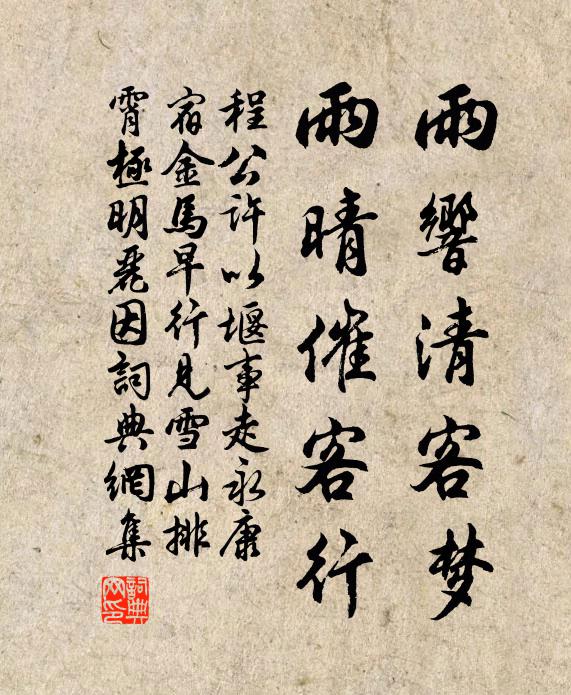 雨響清客梦
雨晴催客行
程公許以堰事走永康
宿金馬早行見雪山排
霄極明麗因詞典網集
詞典
网印